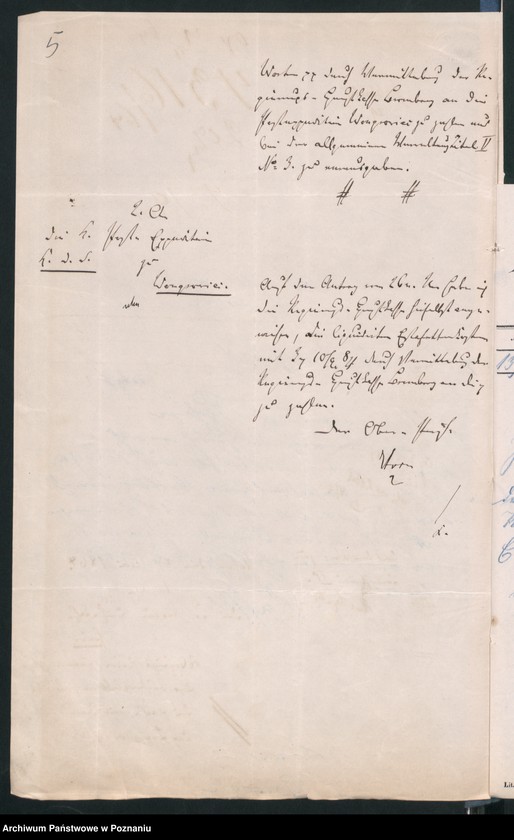 5
Worten pp durch Vermittelung der Re-
gierungs-Hauptkasse Bromberg an die
Postexpedition Wongrowiec zu zahlen und
bei dem allgemeinen Verwaltungstitel II
No 3. zu verausgaben.
2. An
die K. Post-Expedition
zu
Wongrowiec.
Auf den Antrag vom 26 habe ich
die Regierungs-Hauptkasse hierselbst ange-
wiesen, die liquidirten Estafettenkosten
mit durch Vermittelung der
Regierungs-Hauptkasse Bromberg an die
zu zahlen.
Der Ober-Präs.
Archiwum Państwowe w Poznaniu
Lit.